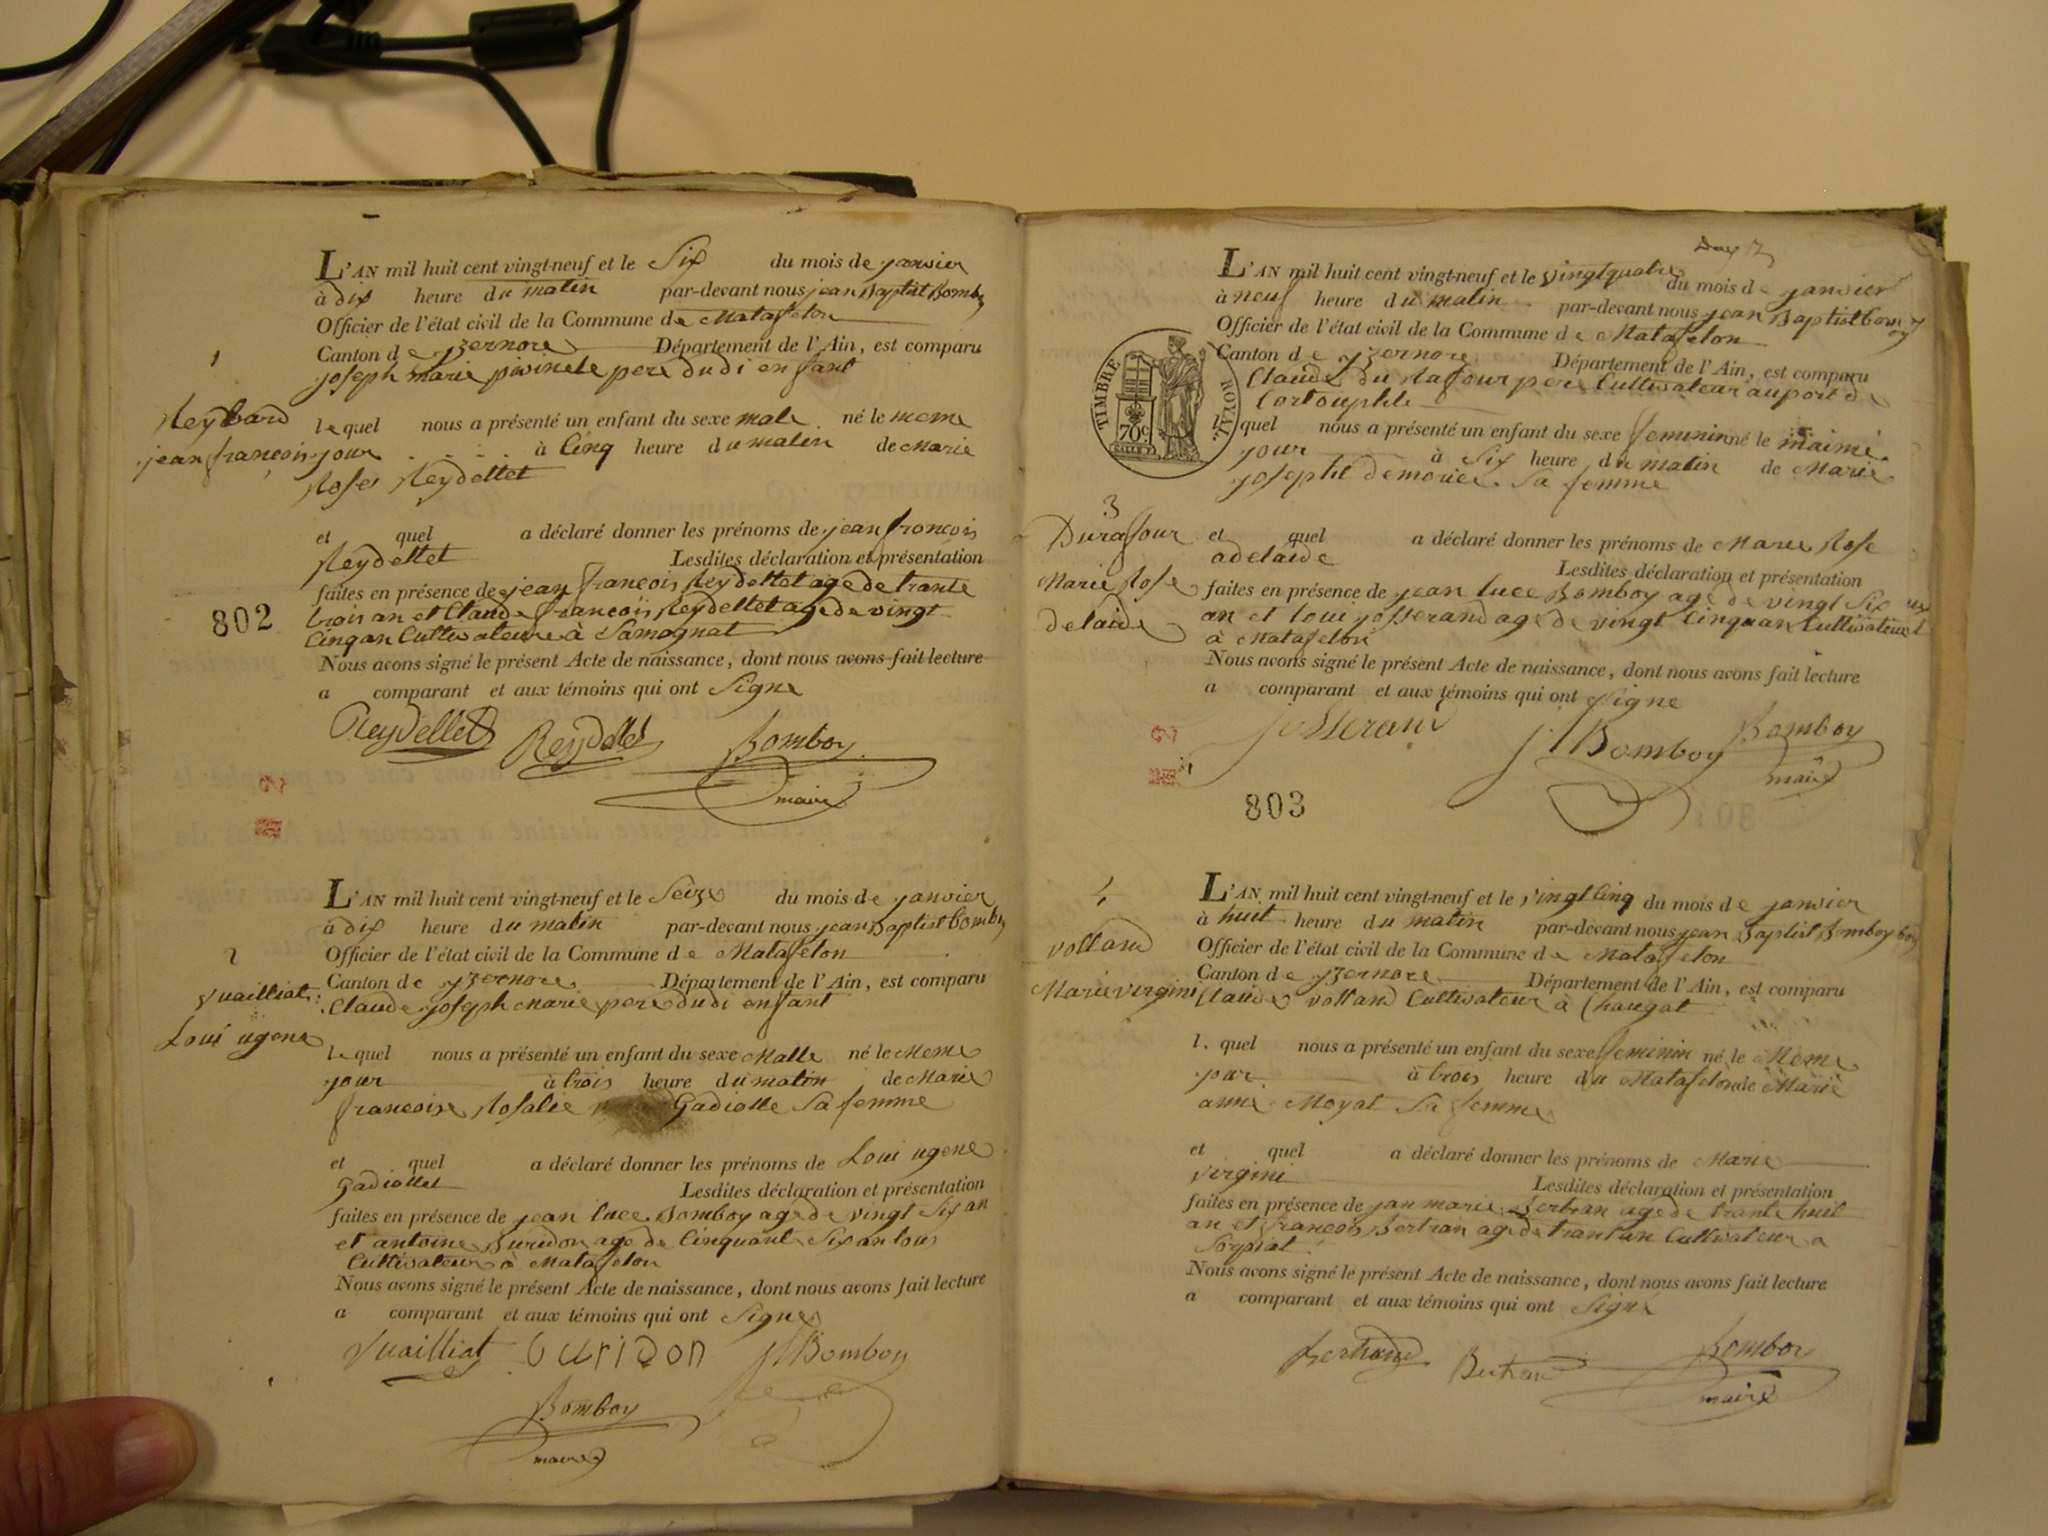 L'AN mil huit cent vingt-neuf et le Six du mois de janvier
à dix heure du matin par-devant nous jean Baptist Bomboy
Officier de l'état civil de la Commune de Matafelon
Canton de yzernore Département de l'Ain, est comparu
joseph marie pere dudi enfant
1
Reybard
jean françois
lequel nous a présenté un enfant du sexe male né le meme
jour à Cinq heure du matin de Marie
Roses Reydellet
et quel a déclaré donner les prénoms de jean francois
Reydellet Lesdites déclaration et présentation
faites en présence de jean francois Reydellet age de trante
trois an et Claude francois Reydellet age de vingt
Cinq an Cultivateure à Samognat
802
Nous avons signé le présent Acte de naissance, dont nous avons fait lecture
a comparant et aux témoins qui ont Signe
Reydellet Reydelet Bomboy
maire
L'AN mil huit cent vingt-neuf et le Seize du mois de janvier
à dix heure du matin par-devant nous jean Baptist bomboy
Officier de l'état civil de la Commune de Matafelon
Canton de yzernore Département de l'Ain, est comparu
Claude joseph Marie pere dudi enfant
2
Vuailliat
Loui ugene
lequel nous a présenté un enfant du sexe Malle né le Meme
jour à trois heure du matin de Marie
francoise Rosalie Gadiolle Sa femme
et quel a déclaré donner les prénoms de Loui ugene
Gadiollet Lesdites déclaration et présentation
faites en présence de jean luce Bomboy age de vingt Six an
et antoine Buridon age de Cinquant Six an tous
Cultivateur à Matafelon
Nous avons signé le présent Acte de naissance, dont nous avons fait lecture
a comparant et aux témoins qui ont Signe
Vuailliat buridon jl Bomboy
Bomboy
maire
L'AN mil huit cent vingt-neuf et le vingtquatre du mois de janvier
à neuf heure du matin par-devant nous jean Baptist bomboy
Officier de l'état civil de la Commune de Matafelon
Canton de yzernore Département de l'Ain, est comparu
Claude du Rafour pere Cultivateur au port de
TIMBRE ROYAL
70c
lequel nous a présenté un enfant du sexe feminin né le maime
jour à Six heure du matin de Marie
josepht Sa femme
3
Durafour
Marie Rose
delaide
et quel a déclaré donner les prénoms de Marie Rose
adelaide Lesdites déclaration et présentation
faites en présence de jean luce Bomboy age de vingt Six
an et Loui josserand age de vingt Cinq an Cultivateur
à Matafelon
Nous avons signé le présent Acte de naissance, dont nous avons fait lecture
a comparant et aux témoins qui ont Signe
josserand jl Bomboy Bomboy
maire
803
L'AN mil huit cent vingt-neuf et le vingt Cinq du mois de janvier
à huit heure du matin par-devant nous jean Baptist Bomboy
Officier de l'état civil de la Commune de Matafelon
Canton de yzernore Département de l'Ain, est comparu
Claude volland Cultivateur à Chaugat
4
volland
Marie virgini
l. quel nous a présenté un enfant du sexe feminin né le Meme
jour à trois heure du Matafelon de Marie
anne Moyat Sa femme
et quel a déclaré donner les prénoms de Marie
virgini Lesdites déclaration et présentation
faites en présence de jan marie Bertran age de trante huit
an et francois Bertran age de trant un Cultivateur a
Nous avons signé le présent Acte de naissance, dont nous avons fait lecture
a comparant et aux témoins qui ont Signé
Bertrand Bertrand Bomboy
maire